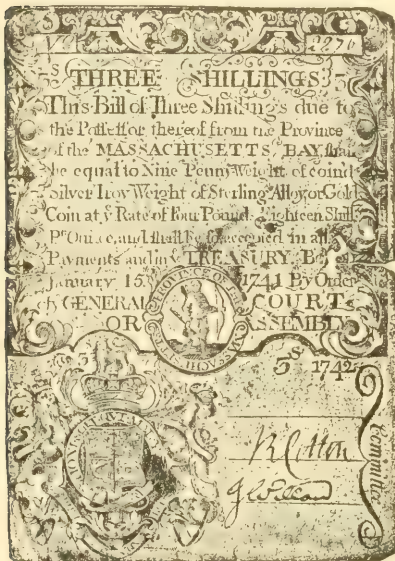 2271
3S THREE SHILLINGS 3S
This Bill of Three Shillings due to
the Possessor thereof from the Province
of the MASSACHUSETTS BAY shall
be equal to Nine Penny Weight of coind
Silver Troy Weight of Sterling Alloy or Gold
Coin at ye Rate of Four Pounds Eighteen Shill
Pr Ounce, and shall be so accepted in all
Payments and in ye TREASURY. B
January 15. 1741 By Order
GENERAL COURT
OR ASSEMBLY
3S 1742
Committee